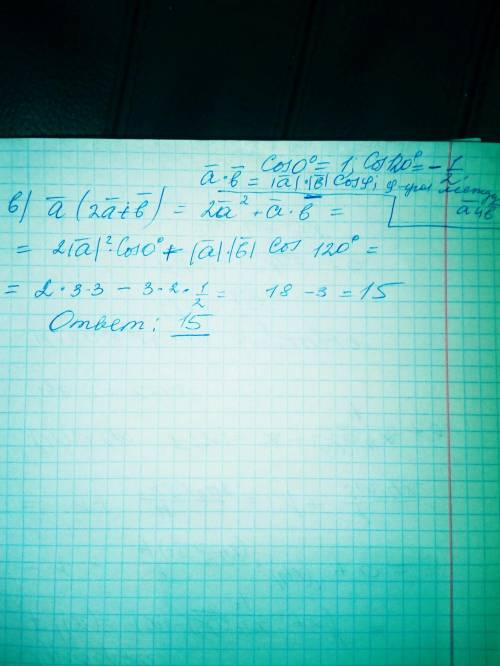 Cos0° = 1, Cos120° = -1/2
a̅·b̅ = |a̅|·|b̅| Cosφ, φ-угол между
a̅ и b̅
в) a̅ (2a̅+b̅) = 2a̅² + a̅·b̅ =
= 2|a̅|²·Cos0° + |a̅|·|b̅| Cos 120° =
= 2·3·3 - 3·2·1/2 = 18 - 3 = 15
Ответ: 15